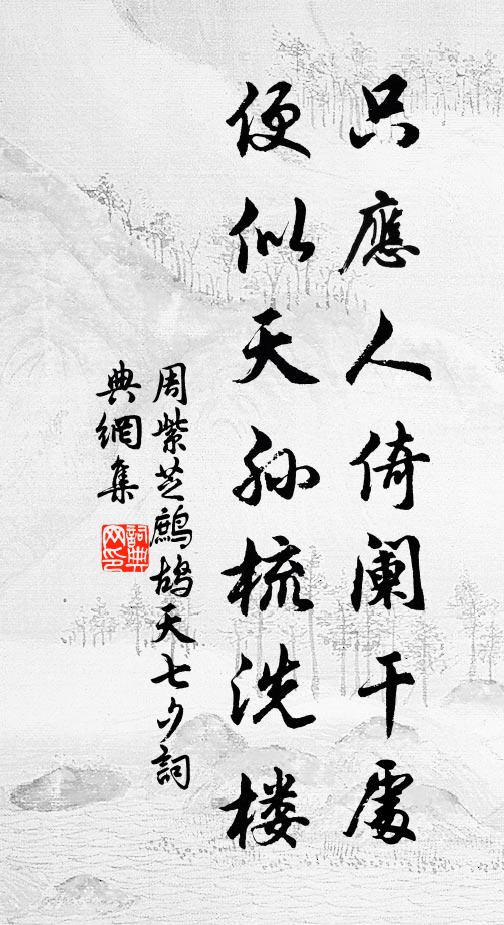 只應人倚阑干處
便似天孙梳洗楼
周紫芝鷓鴣天七夕詞
典網集
詞典网印